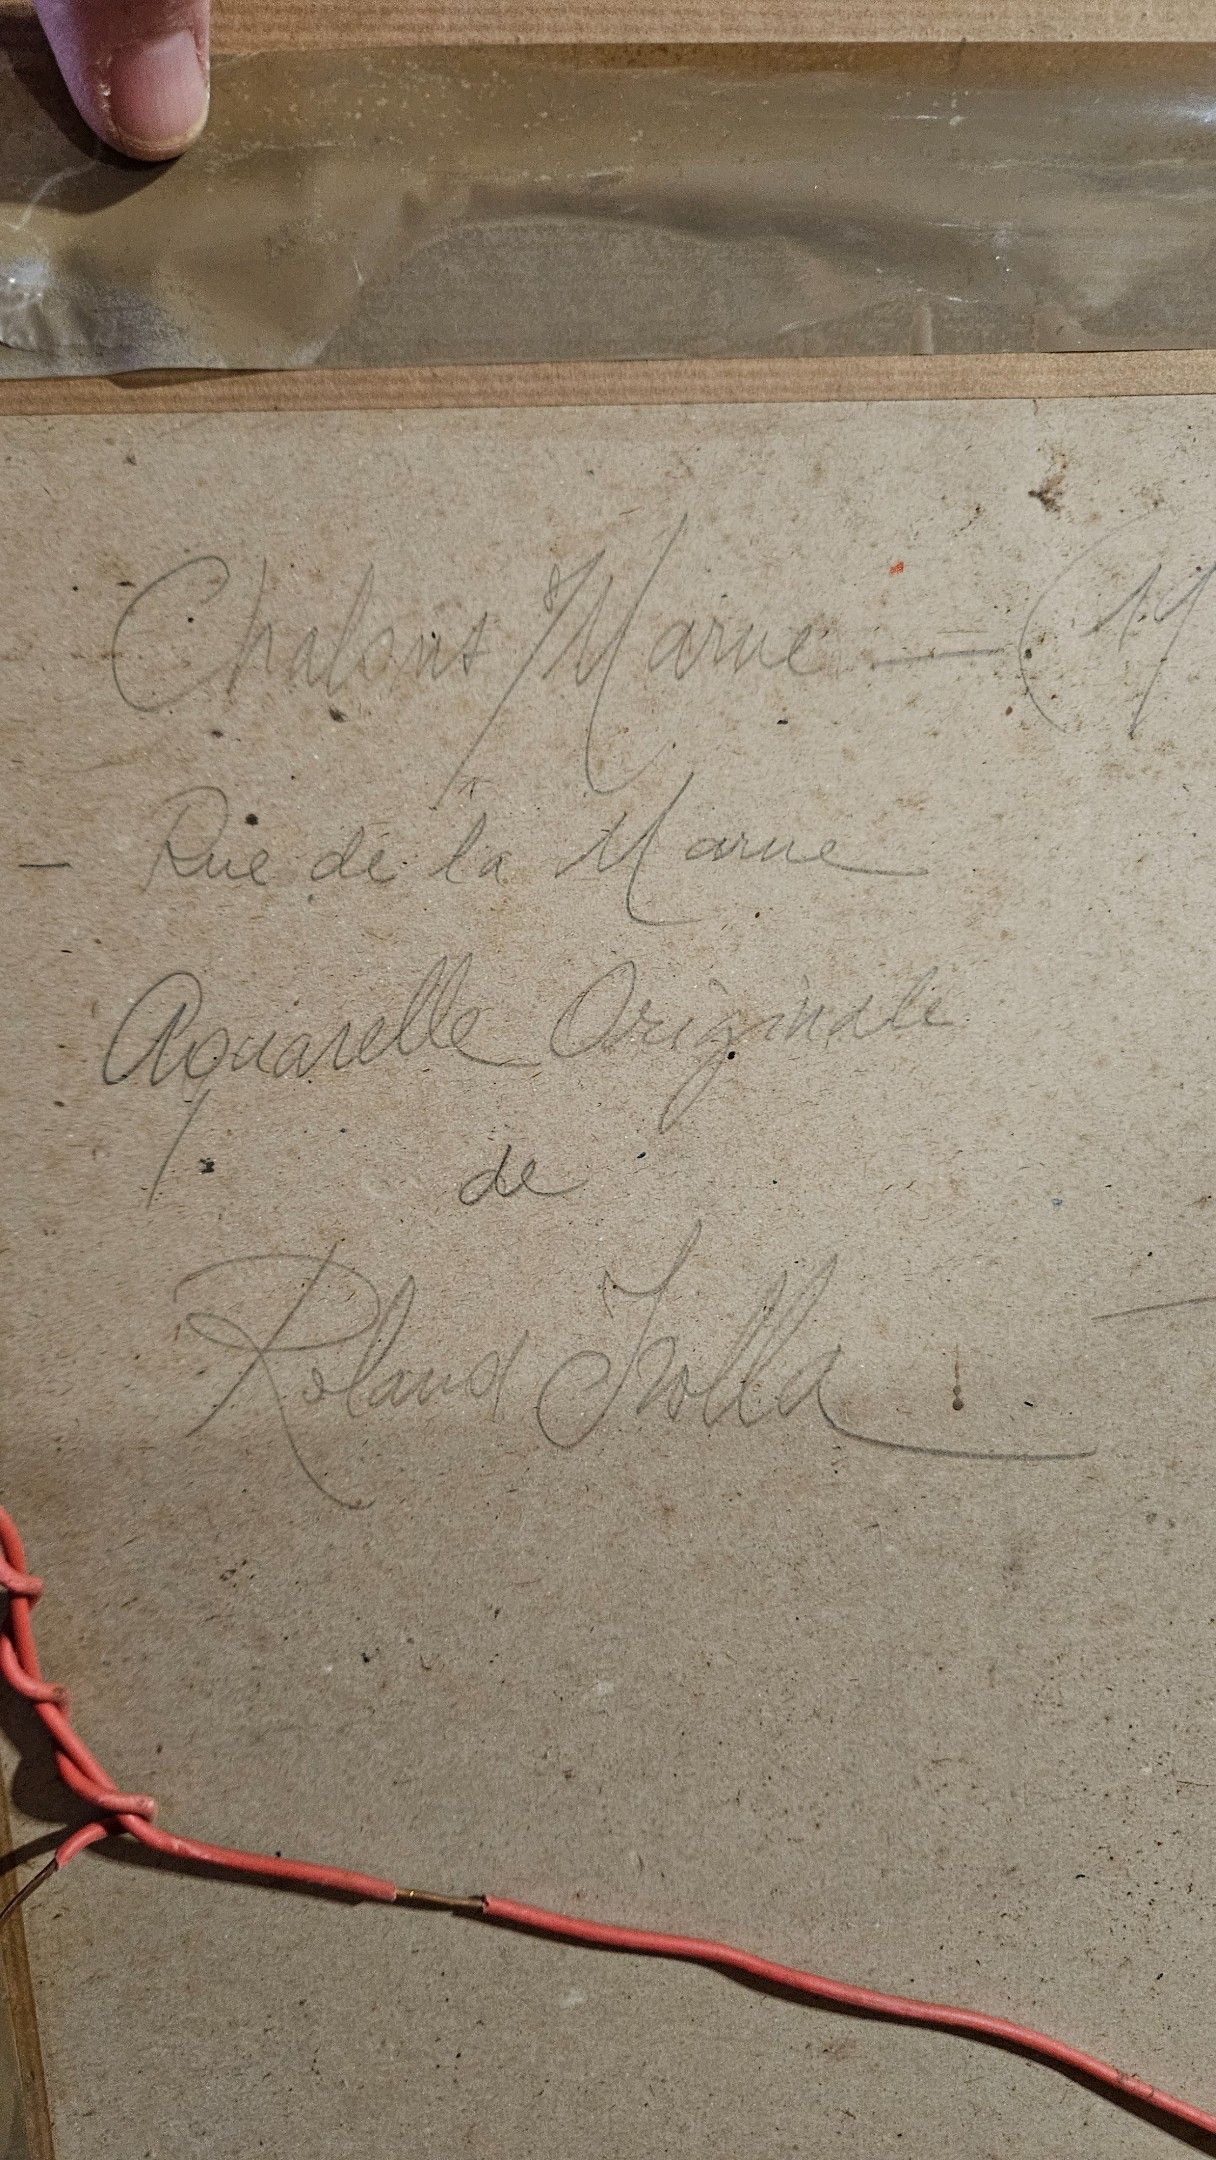 Chalons s/Marne — (19
— Rue de la Marne
Aquarelle Originale
de
Roland Irolla